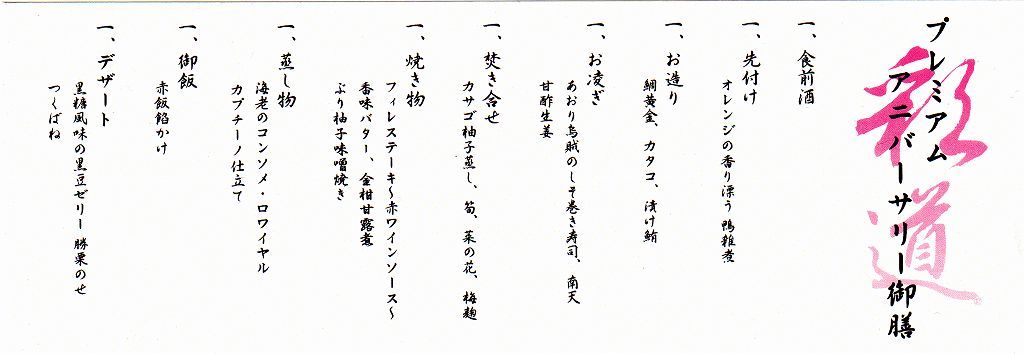 彩道
プレミアム
アニバーサリー御膳
一、食前酒
一、先付け
オレンジの香り漂う 鴨雑煮
一、お造り
鯛黄金、カタコ、漬け鮪
一、お凌ぎ
あおり烏賊のしそ巻き寿司、南天
甘酢生姜
一、焚き合せ
カサゴ柚子蒸し、筍、菜の花、梅麹
一、焼き物
フィレステーキ～赤ワインソース～
香味バター、金柑甘露煮
ぶり柚子味噌焼き
一、蒸し物
海老のコンソメ・ロワイヤル
カプチーノ仕立て
一、御飯
赤飯餡かけ
一、デザート
黒糖風味の黒豆ゼリー 勝栗のせ
つくばね